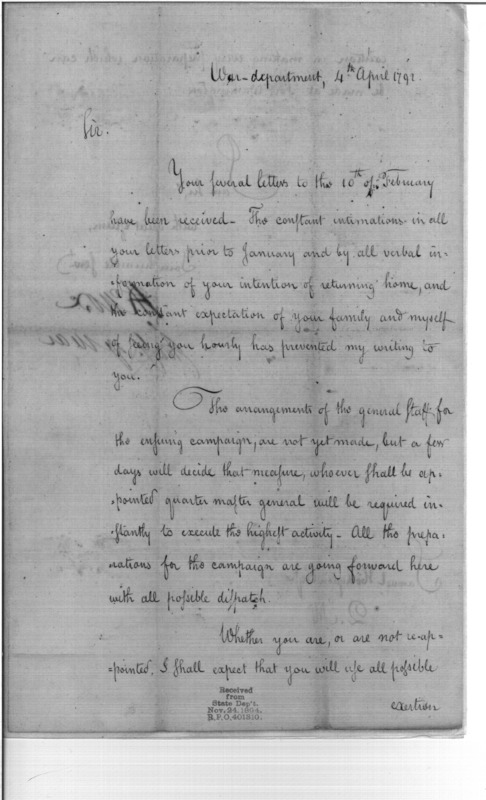 War-department, 4th April 1792.
Sir.
Your several letters to the 10th of February
have been received - The constant intimations in all
your letters prior to January and by all verbal in-
-formation of your intention of returning home, and
the constant expectation of your family and myself
of seeing you hourly has prevented my writing to
you.
The arrangements of the general Staff for
the ensuing campaign, are not yet made, but a few
days will decide that measure, whoever shall be ap-
-pointed quarter master general will be required in-
-stantly to execute the highest activity - All the prepa-
-rations for the campaign are going forward here
with all possible dispatch.
Whether you are, or are not re-ap-
-pointed, I shall expect that you will use all possible
exertion
Received
from
State Dep't.
Nov. 24, 1904.
R.P.O. 401810.